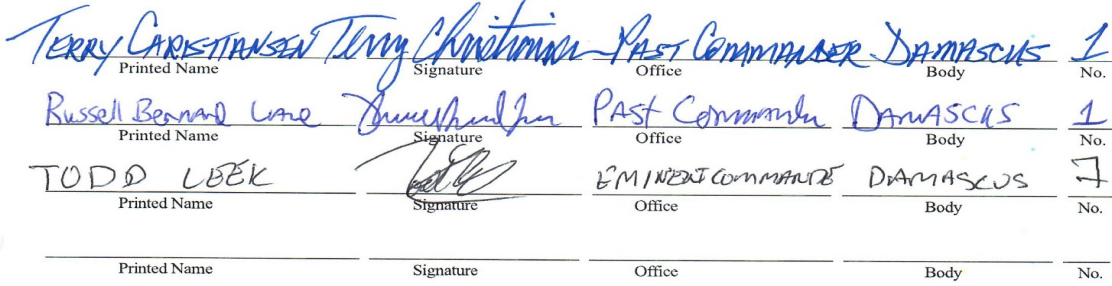 TERRY CHRISTIANSEN Terry Christiansen PAST COMMANDER DAMASCUS 1
Printed Name Signature Office Body No.
Russell Bernard Lane PAST Commander DAMASCUS 1
Printed Name Signature Office Body No.
TODD LEEK EMINENT COMMANDE DAMASCUS 7
Printed Name Signature Office Body No.
Printed Name Signature Office Body No.